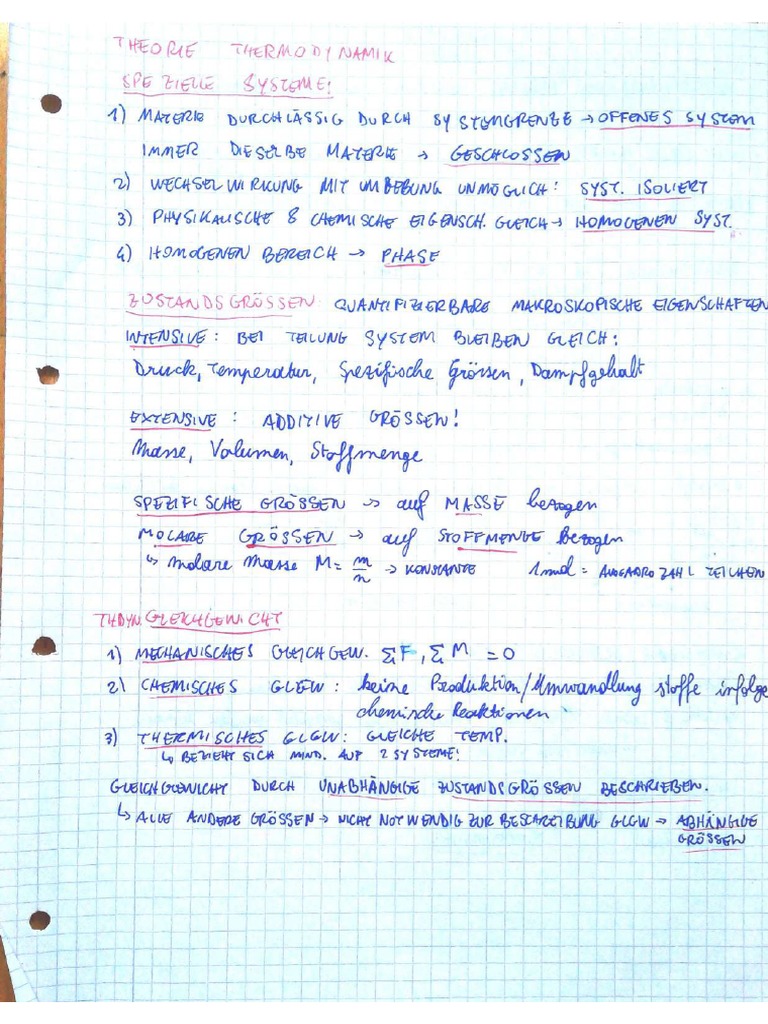 THEORIE THERMODYNAMIK
SPEZIELLE SYSTEME:
1) MATERIE DURCHLÄSSIG DURCH SYSTEMGRENZE → OFFENES SYSTEM
IMMER DIESELBE MATERIE → GESCHLOSSEN
2) WECHSELWIRKUNG MIT UMBEBUNG UNMÖGLICH: SYST. ISOLIERT
3) PHYSIKALISCHE & CHEMISCHE EIGENSCH. GLEICH → HOMOGENEN SYST.
4) HOMOGENEN BEREICH → PHASE
ZUSTANDSGRÖSSEN: QUANTIFIZIERBARE MAKROSKOPISCHE EIGENSCHAFTEN
INTENSIVE: BEI TEILUNG SYSTEM BLEIBEN GLEICH:
Druck, Temperatur, Spezifische Grössen, Dampfgehalt
EXTENSIVE: ADDITIVE GRÖSSEN!
Masse, Volumen, Stoffmenge
SPEZIFISCHE GRÖSSEN → auf MASSE bezogen
MOLARE GRÖSSEN → auf STOFFMENGE bezogen
↳ molare Masse M = m/n → KONSTANTE 1mol = AVOGADRO ZAHL TEILCHEN
THDYN. GLEICHGEWICHT
1) MECHANISCHES GLEICHGEW. ΣF, ΣM = 0
2) CHEMISCHES GLGW: keine Produktion/Umwandlung stoffe infolge
chemische Reaktionen
3) THERMISCHES GLGW: GLEICHE TEMP.
↳ BEZIEHT SICH MIND. AUF 2 SYSTEME!
GLEICHGEWICHT DURCH UNABHÄNGIGE ZUSTANDSGRÖSSEN BESCHRIEBEN.
↳ ALLE ANDERE GRÖSSEN → NICHT NOTWENDIG ZUR BESCHREIBUNG GLGW → ABHÄNGIGE
GRÖSSEN